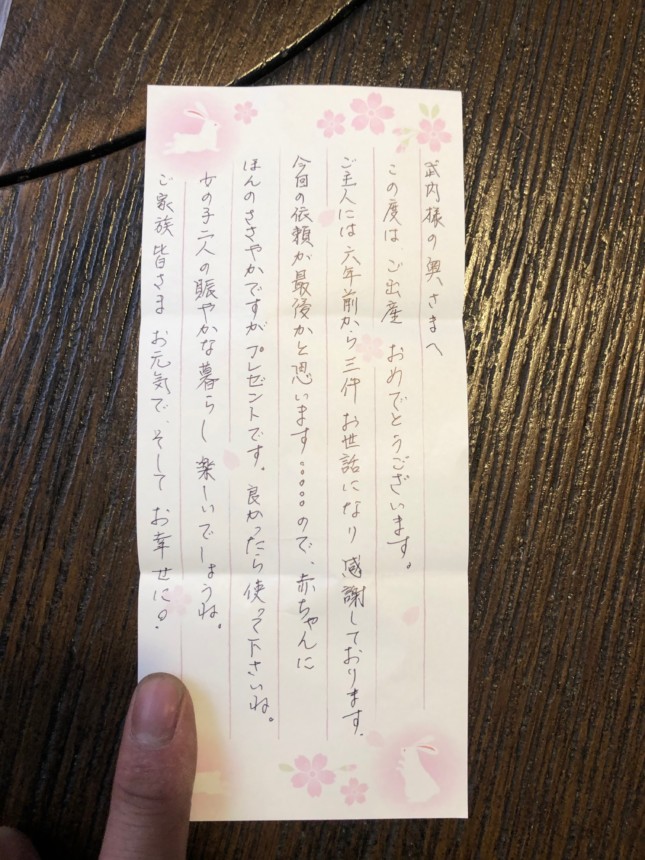 武内様の奥さまへ
この度は、ご出産 おめでとうございます。
ご主人には 六年前から 三件 お世話になり 感謝しております。
今回の依頼が最後かと思います。。。。。ので、赤ちゃんに
ほんのささやかですがプレゼントです。良かったら使って下さいね。
女の子二人の賑やかな暮らし 楽しいでしょうね。
ご家族皆さま お元気で、そして お幸せに!